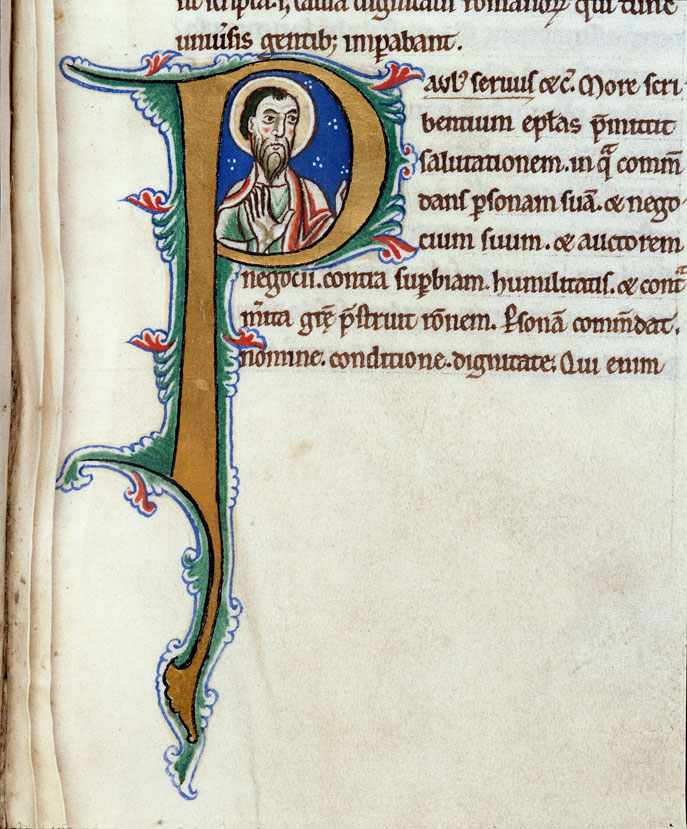 ul scripta. ł, causa dignitatū romanorꝝ qui tunc
uniu͛sis gentibꝫ imꝑabant.
Paulꝰ seruus ⁊c̄. More scri-
bentium epl̄as p̄mittit
salutationem. in qͣ comm̄-
dans ꝑsonam suā. & nego-
cium suum. & auctorem
negocii. contra suꝑbiam. humilitatis. & contͣ
m͛ita grē p̄struit rōnem. Ꝑsonā comm̄dat.
nomine. conditione. dignitate; Qui enim